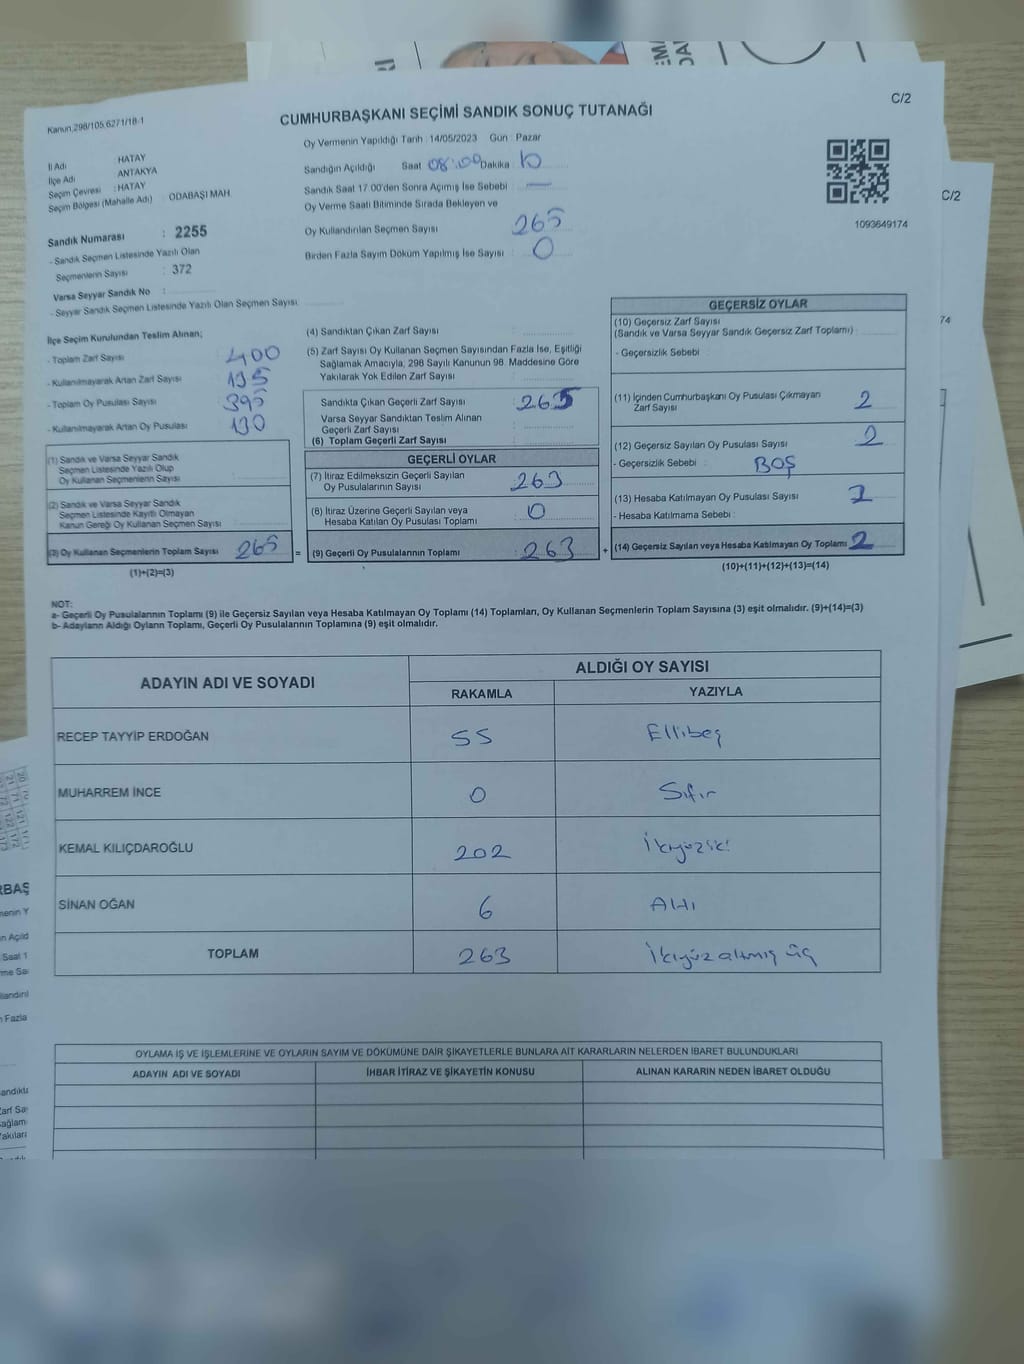 C/2
Kanun,298/105,6271/18-1
CUMHURBAŞKANI SEÇİMİ SANDIK SONUÇ TUTANAĞI
İl Adı HATAY
İlçe Adı ANTAKYA
Seçim Çevresi : HATAY
Seçim Bölgesi (Mahalle Adı) ODABAŞI MAH.
Sandık Numarası : 2255
- Sandık Seçmen Listesinde Yazılı Olan
Seçmenlerin Sayısı : 372
Varsa Seyyar Sandık No :
- Seyyar Sandık Seçmen Listesinde Yazılı Olan Seçmen Sayısı
Oy Vermenin Yapıldığı Tarih : 14/05/2023 Gün : Pazar
Sandığın Açıldığı Saat 08:00 Dakika 10
Sandık Saat 17.00'den Sonra Açılmış İse Sebebi : —
Oy Verme Saati Bitiminde Sırada Bekleyen ve
Oy Kullandırılan Seçmen Sayısı 265
Birden Fazla Sayım Döküm Yapılmış İse Sayısı : 0
1093649174
İlçe Seçim Kurulundan Teslim Alınan;
- Toplam Zarf Sayısı : 400
- Kullanılmayarak Artan Zarf Sayısı 135
- Toplam Oy Pusulası Sayısı : 395
- Kullanılmayarak Artan Oy Pusulası 130
(1) Sandık ve Varsa Seyyar Sandık
Seçmen Listesinde Yazılı Olup
Oy Kullanan Seçmenlerin Sayısı
(2) Sandık ve Varsa Seyyar Sandık
Seçmen Listesinde Kayıtlı Olmayan
Kanun Gereği Oy Kullanan Seçmen Sayısı
(3) Oy Kullanan Seçmenlerin Toplam Sayısı 265 =
(1)+(2)=(3)
(4) Sandıktan Çıkan Zarf Sayısı :
(5) Zarf Sayısı Oy Kullanan Seçmen Sayısından Fazla İse, Eşitliği
Sağlamak Amacıyla, 298 Sayılı Kanunun 98. Maddesine Göre
Yakılarak Yok Edilen Zarf Sayısı
Sandıkta Çıkan Geçerli Zarf Sayısı : 265
Varsa Seyyar Sandıktan Teslim Alınan
Geçerli Zarf Sayısı
(6) Toplam Geçerli Zarf Sayısı
GEÇERLİ OYLAR
(7) İtiraz Edilmeksizin Geçerli Sayılan
Oy Pusulalarının Sayısı : 263
(8) İtiraz Üzerine Geçerli Sayılan veya
Hesaba Katılan Oy Pusulası Toplamı : 0
(9) Geçerli Oy Pusulalarının Toplamı : 263 +
GEÇERSİZ OYLAR
(10) Geçersiz Zarf Sayısı
(Sandık ve Varsa Seyyar Sandık Geçersiz Zarf Toplamı) :
- Geçersizlik Sebebi :
(11) İçinden Cumhurbaşkanı Oy Pusulası Çıkmayan
Zarf Sayısı 2
(12) Geçersiz Sayılan Oy Pusulası Sayısı
- Geçersizlik Sebebi : BOŞ
(13) Hesaba Katılmayan Oy Pusulası Sayısı
- Hesaba Katılmama Sebebi :
(14) Geçersiz Sayılan veya Hesaba Katılmayan Oy Toplamı 2
(10)+(11)+(12)+(13)=(14)
NOT:
a- Geçerli Oy Pusulalarının Toplamı (9) ile Geçersiz Sayılan veya Hesaba Katılmayan Oy Toplamı (14) Toplamları, Oy Kullanan Seçmenlerin Toplam Sayısına (3) eşit olmalıdır. (9)+(14)=(3)
b- Adayların Aldığı Oyların Toplamı, Geçerli Oy Pusulalarının Toplamına (9) eşit olmalıdır.
ADAYIN ADI VE SOYADI
ALDIĞI OY SAYISI
RAKAMLA YAZIYLA
RECEP TAYYİP ERDOĞAN 55 Ellibeş
MUHARREM İNCE 0 Sıfır
KEMAL KILIÇDAROĞLU 202 İkiyüziki
SİNAN OĞAN 6 Altı
TOPLAM 263 İkiyüz altmış üç
OYLAMA İŞ VE İŞLEMLERİNE VE OYLARIN SAYIM VE DÖKÜMÜNE DAİR ŞİKAYETLERLE BUNLARA AİT KARARLARIN NELERDEN İBARET BULUNDUKLARI
ADAYIN ADI VE SOYADI İHBAR İTİRAZ VE ŞİKAYETİN KONUSU ALINAN KARARIN NEDEN İBARET OLDUĞU
C/2
74